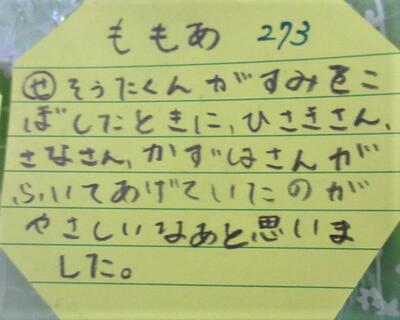 ももあ 273
せ そうたくんがすみをこ
ぼしたときに、ひさきさん、
さなさん、かずはさんが
ふいてあげていたのが
やさしいなあと思いま
した。